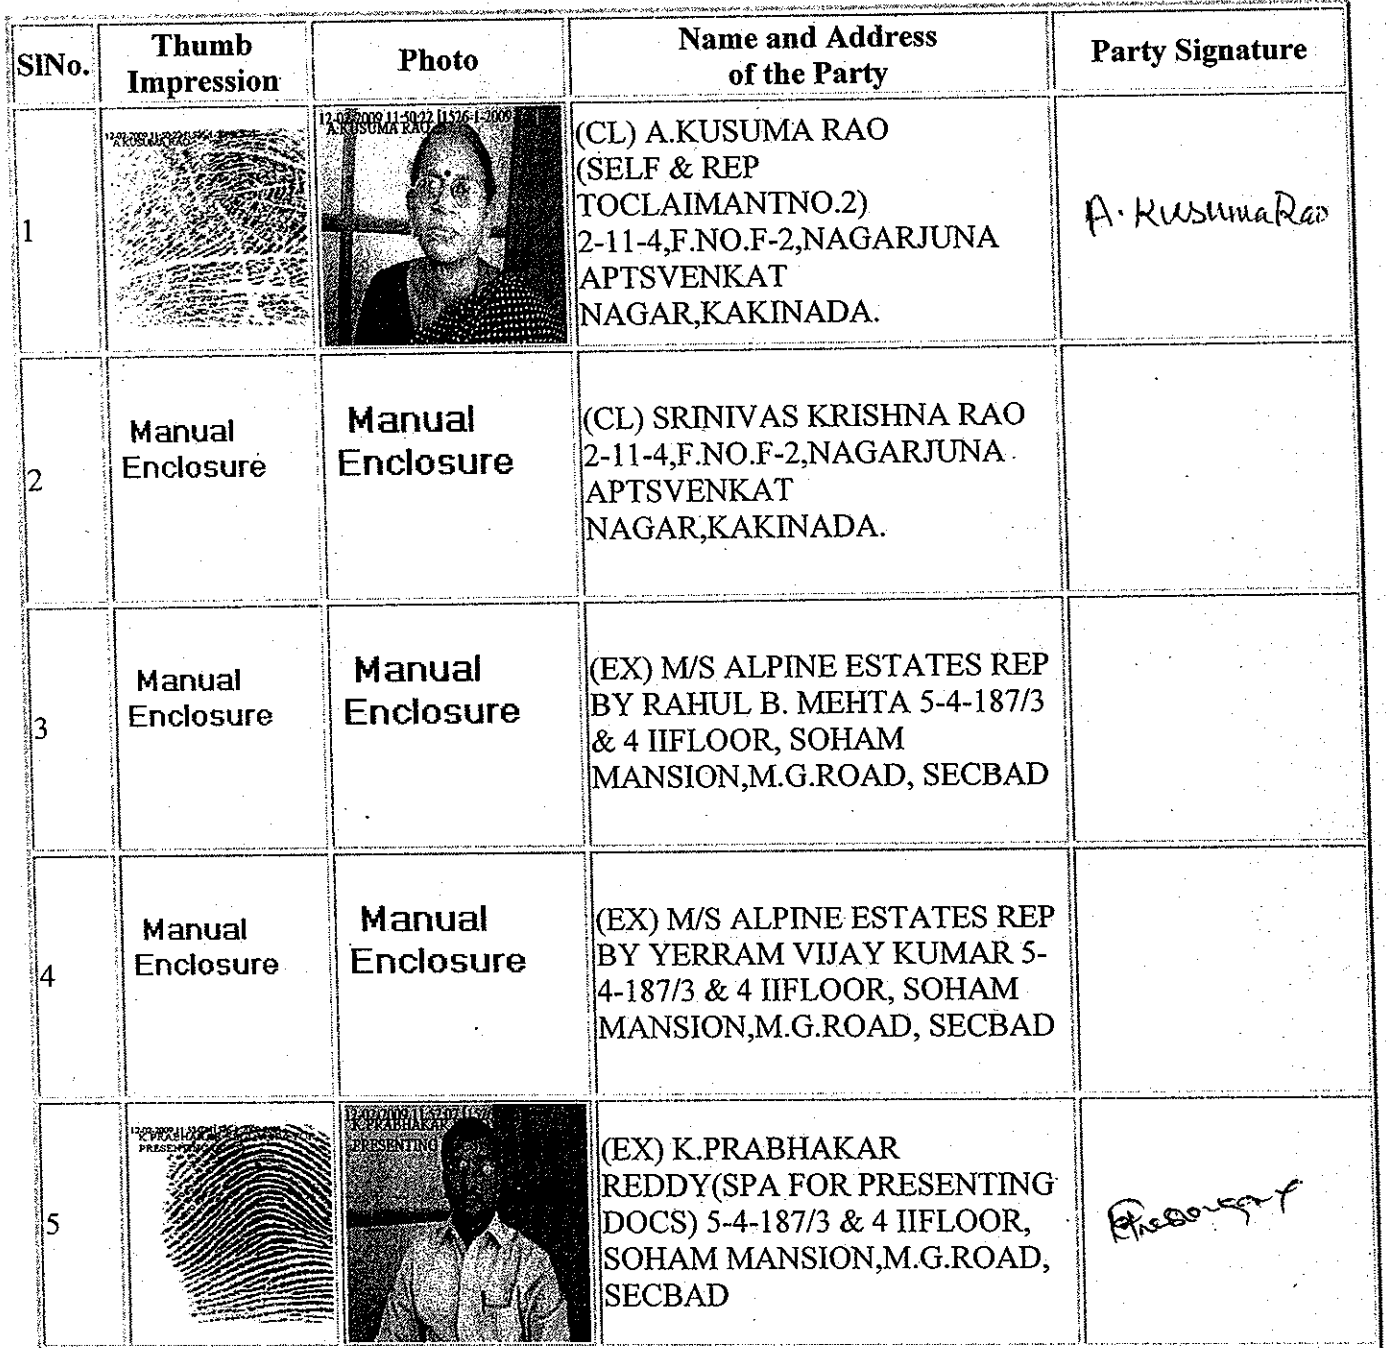 SlNo. Thumb Impression Photo Name and Address of the Party Party Signature
1
12-02-2009 11:50:22
A.KUSUMA RAO
12-02-2009 11:50:22 [1526-1-2009
A.KUSUMA RAO
(CL) A.KUSUMA RAO
(SELF & REP
TOCLAIMANTNO.2)
2-11-4,F.NO.F-2,NAGARJUNA
APTSVENKAT
NAGAR,KAKINADA.
A. Kusuma Rao
2
Manual
Enclosure
Manual
Enclosure
(CL) SRINIVAS KRISHNA RAO
2-11-4,F.NO.F-2,NAGARJUNA
APTSVENKAT
NAGAR,KAKINADA.
3
Manual
Enclosure
Manual
Enclosure
(EX) M/S ALPINE ESTATES REP
BY RAHUL B. MEHTA 5-4-187/3
& 4 IIFLOOR, SOHAM
MANSION,M.G.ROAD, SECBAD
4
Manual
Enclosure
Manual
Enclosure
(EX) M/S ALPINE ESTATES REP
BY YERRAM VIJAY KUMAR 5-
4-187/3 & 4 IIFLOOR, SOHAM
MANSION,M.G.ROAD, SECBAD
5
K.PRABHAKAR
K.PRABHAKAR
PRESENTING
(EX) K.PRABHAKAR
REDDY(SPA FOR PRESENTING
DOCS) 5-4-187/3 & 4 IIFLOOR,
SOHAM MANSION,M.G.ROAD,
SECBAD